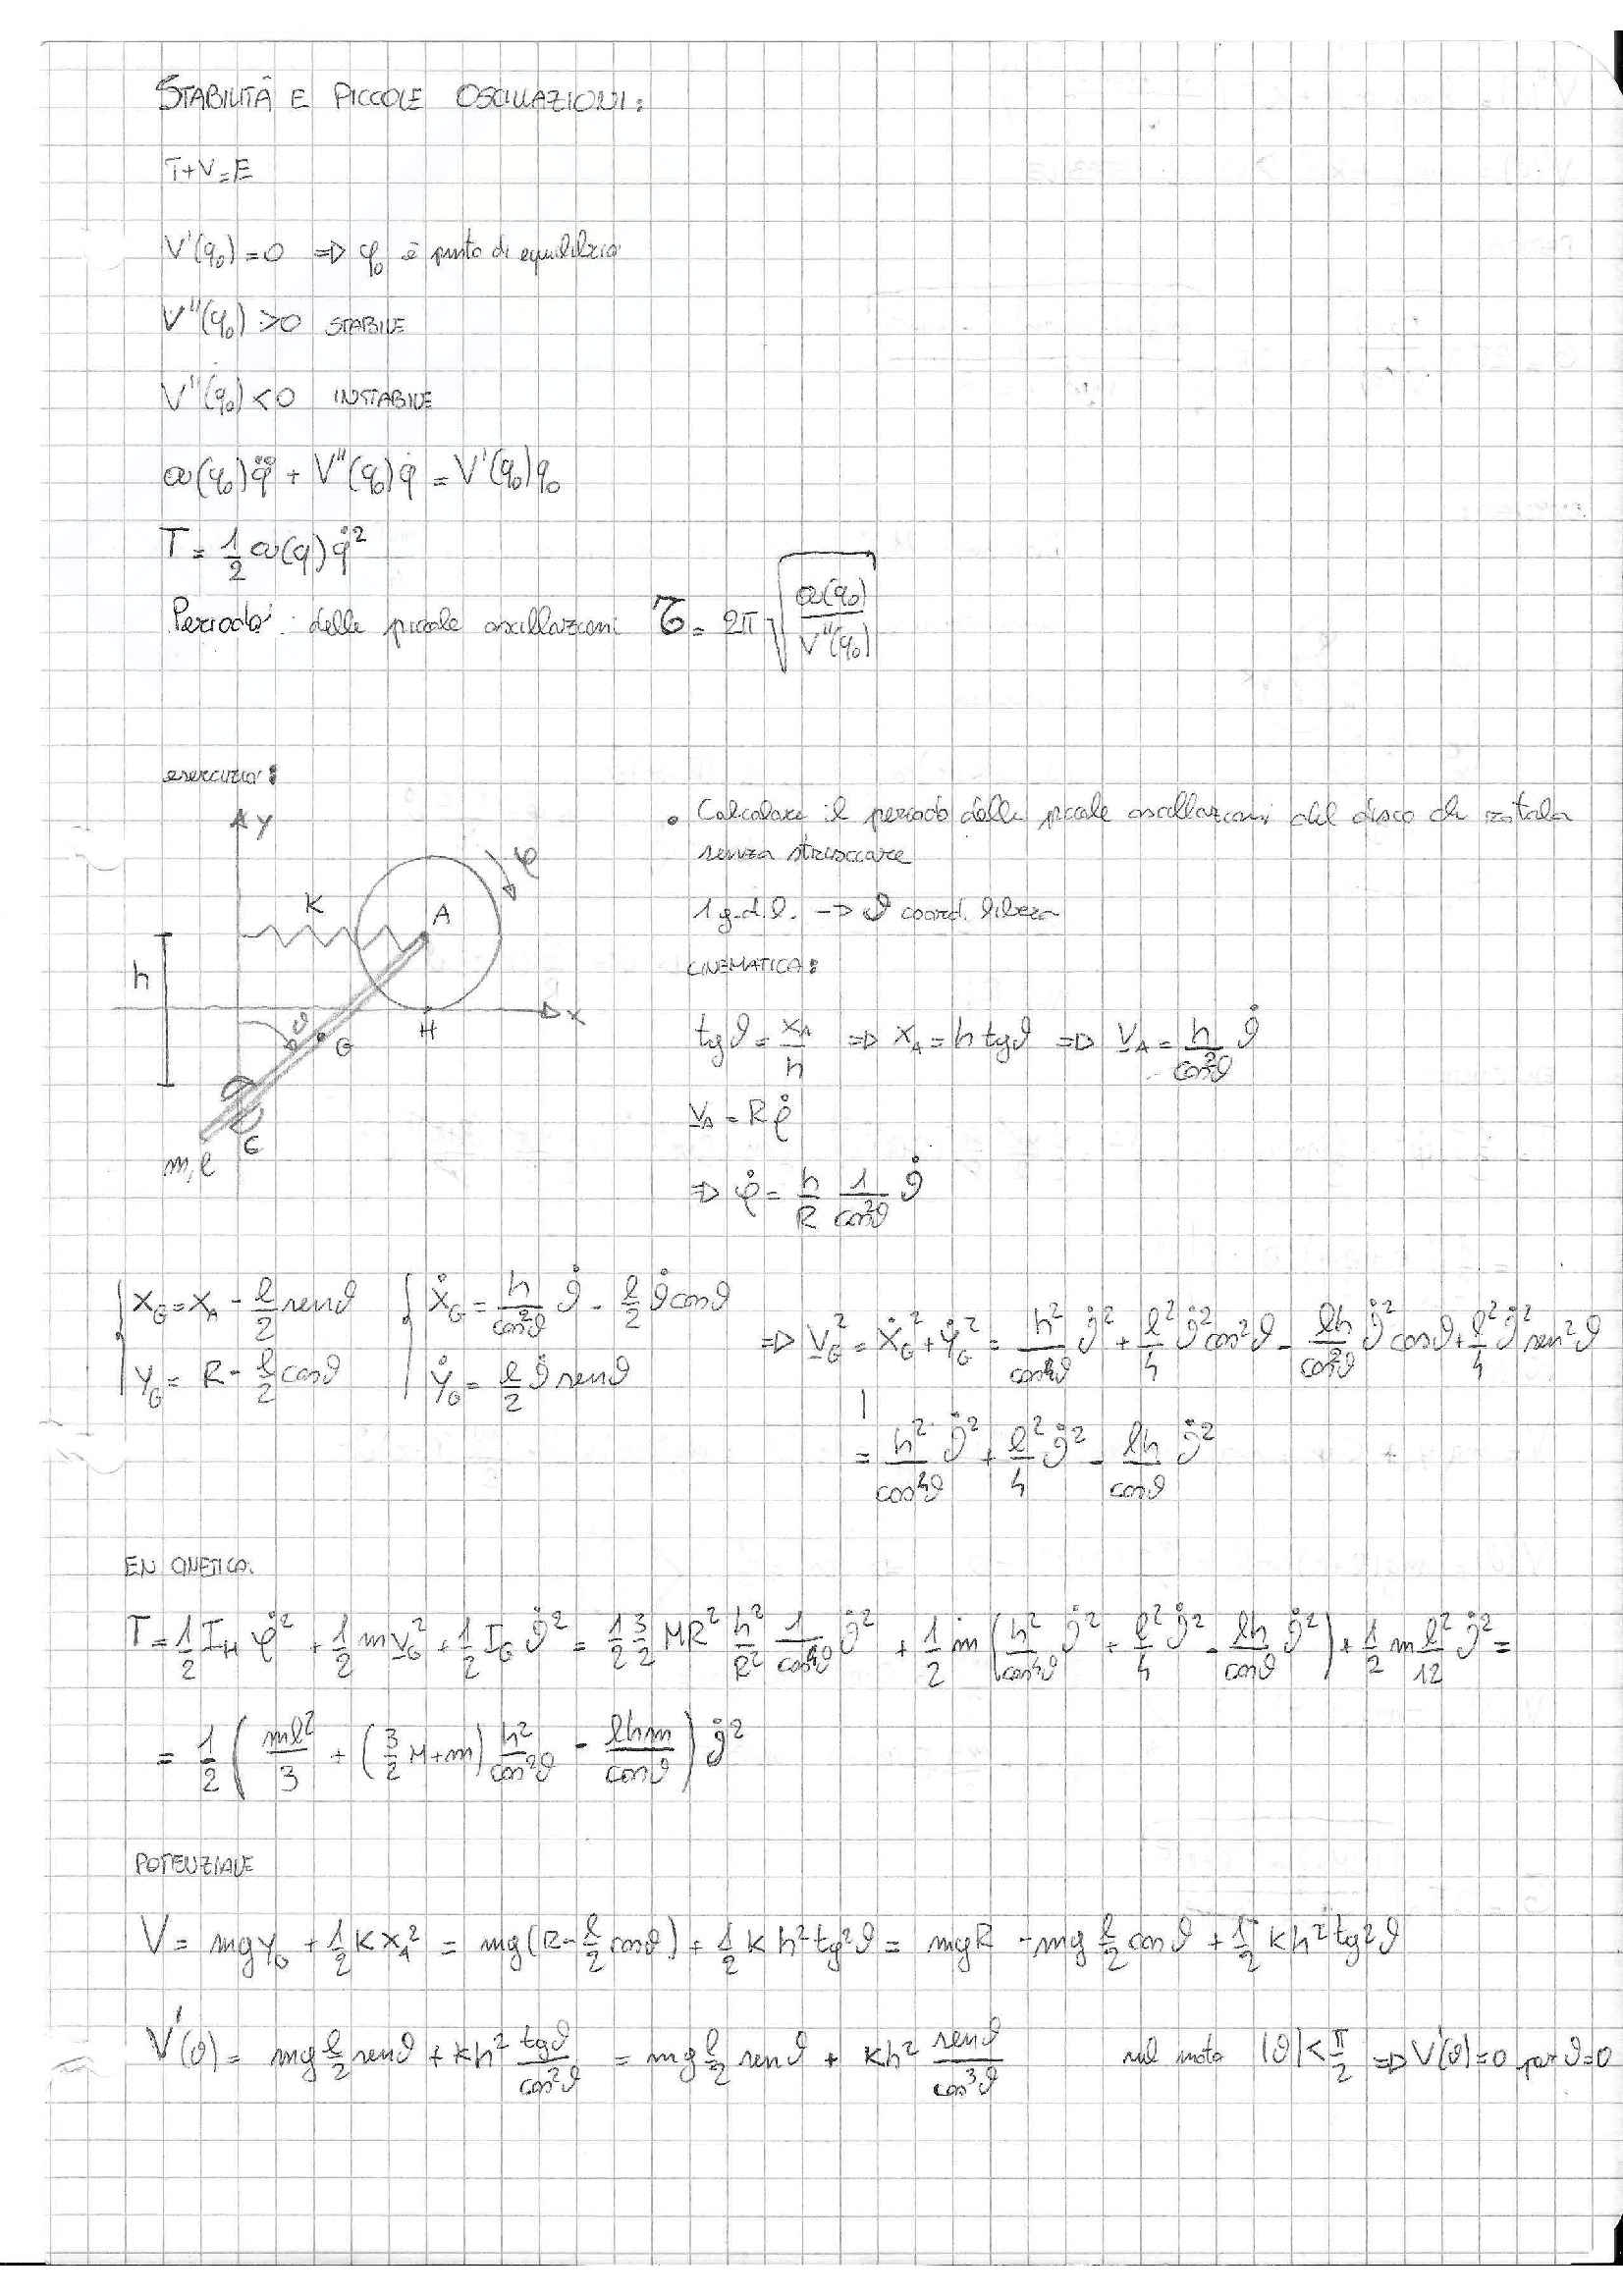 STABILITÀ E PICCOLE OSCILLAZIONI:
T+V=E
V'(q₀)=0 ⇒ q₀ è punto di equilibrio
V''(q₀)>0 STABILE
V''(q₀)<0 INSTABILE
a(q₀)q̈ + V''(q₀)q = V'(q₀)q₀
T = 1/2 a(q) q̇²
Periodo: delle piccole oscillazioni τ = 2π √(a(q₀)/V''(q₀))
esercizio:
y
• Calcolare il periodo delle piccole oscillazioni del disco che rotola
senza strisciare
φ
K
A
1 g.d.l. → ϑ coord. libera
CINEMATICA:
h
x
H
ϑ
G
tgϑ = x_A/h ⇒ x_A = h tgϑ ⇒ v_A = h/cos²ϑ ϑ̇
v_A = Rφ̇
C
m,l
⇒ φ̇ = h/R 1/cos²ϑ ϑ̇
{ x_G = x_A - l/2 senϑ { ẋ_G = h/cos²ϑ ϑ̇ - l/2 ϑ̇ cosϑ
y_G = R - l/2 cosϑ ẏ_G = l/2 ϑ̇ senϑ
⇒ v_G² = ẋ_G² + ẏ_G² = h²/cos⁴ϑ ϑ̇² + l²/4 ϑ̇² cos²ϑ - lh/cos²ϑ ϑ̇² cosϑ + l²/4 ϑ̇² sen²ϑ
= h²/cos⁴ϑ ϑ̇² + l²/4 ϑ̇² - lh/cosϑ ϑ̇²
EN CINETICA.
T = 1/2 I_H φ̇² + 1/2 m v_G² + 1/2 I_G ϑ̇² = 1/2 3/2 MR² h²/R² 1/cos⁴ϑ ϑ̇² + 1/2 m (h²/cos⁴ϑ ϑ̇² + l²/4 ϑ̇² - lh/cosϑ ϑ̇²) + 1/2 m l²/12 ϑ̇² =
= 1/2 (ml²/3 + (3/2 M+m) h²/cos²ϑ - lhm/cosϑ) ϑ̇²
POTENZIALE
V = mg y_G + 1/2 K x_A² = mg(R - l/2 cosϑ) + 1/2 K h² tg²ϑ = mgR - mg l/2 cosϑ + 1/2 K h² tg²ϑ
V'(ϑ) = mg l/2 senϑ + Kh² tgϑ/cos²ϑ = mg l/2 senϑ + Kh² senϑ/cos³ϑ nel moto |ϑ|<π/2 ⇒ V'(ϑ)=0 per ϑ=0